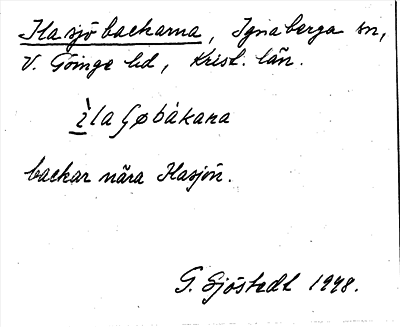 Ila sjö backarna, Ignaberga sn,
V. Göinge hd, Krist. län.
ìla Ꞔøbákana
backar nära Ilasjön.
G. Sjöstedt 1948.